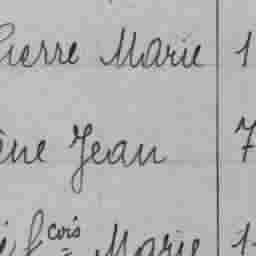 Pierre Marie 1
ène Jean 7
é fcois Marie 1